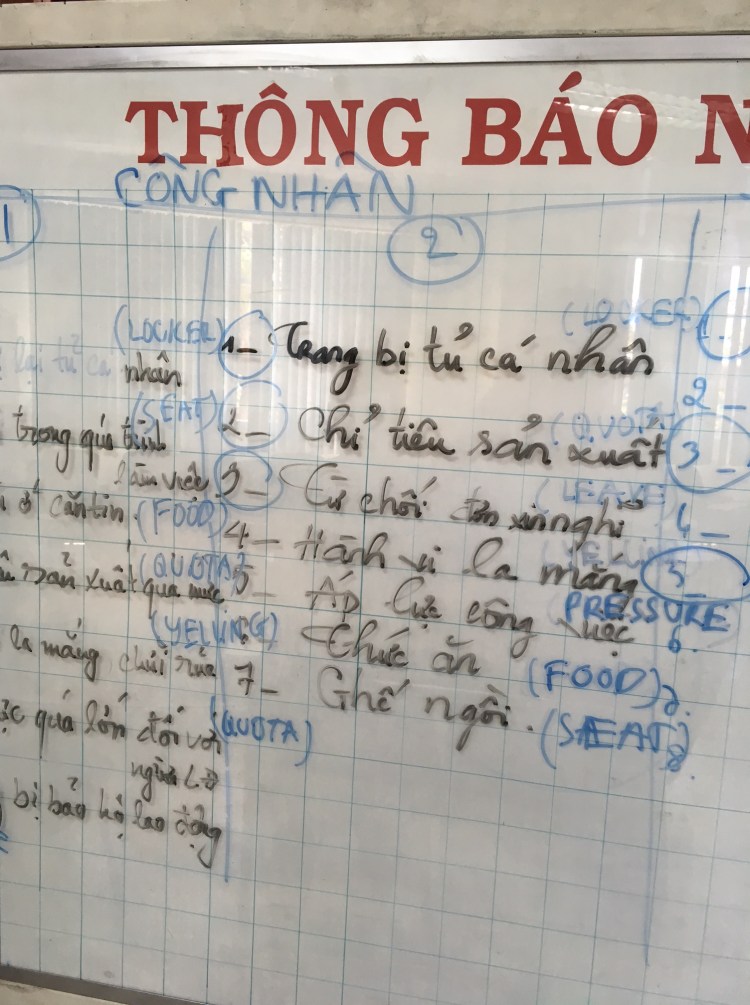 THÔNG BÁO N
CÔNG NHÂN
1
lại tủ cá nhân (LOCKER)
trong quá trình làm việc (SEAT)
ở căn tin (FOOD)
sản xuất quá mức (QUOTA)
la mắng chửi rủa (YELLING)
quá lớn đối với người LĐ (QUOTA)
bị bảo hộ lao động
2
1- Trang bị tủ cá nhân (LOCKER)
2- Chỉ tiêu sản xuất (QUOTA)
3- Từ chối đơn xin nghỉ (LEAVE)
4- Hành vi la mắng
5- Áp lực công việc PRESSURE
6. Thức ăn (FOOD)
7- Ghế ngồi. (SEAT)
1-
2-
3-
4-
5
6.
7.
8.